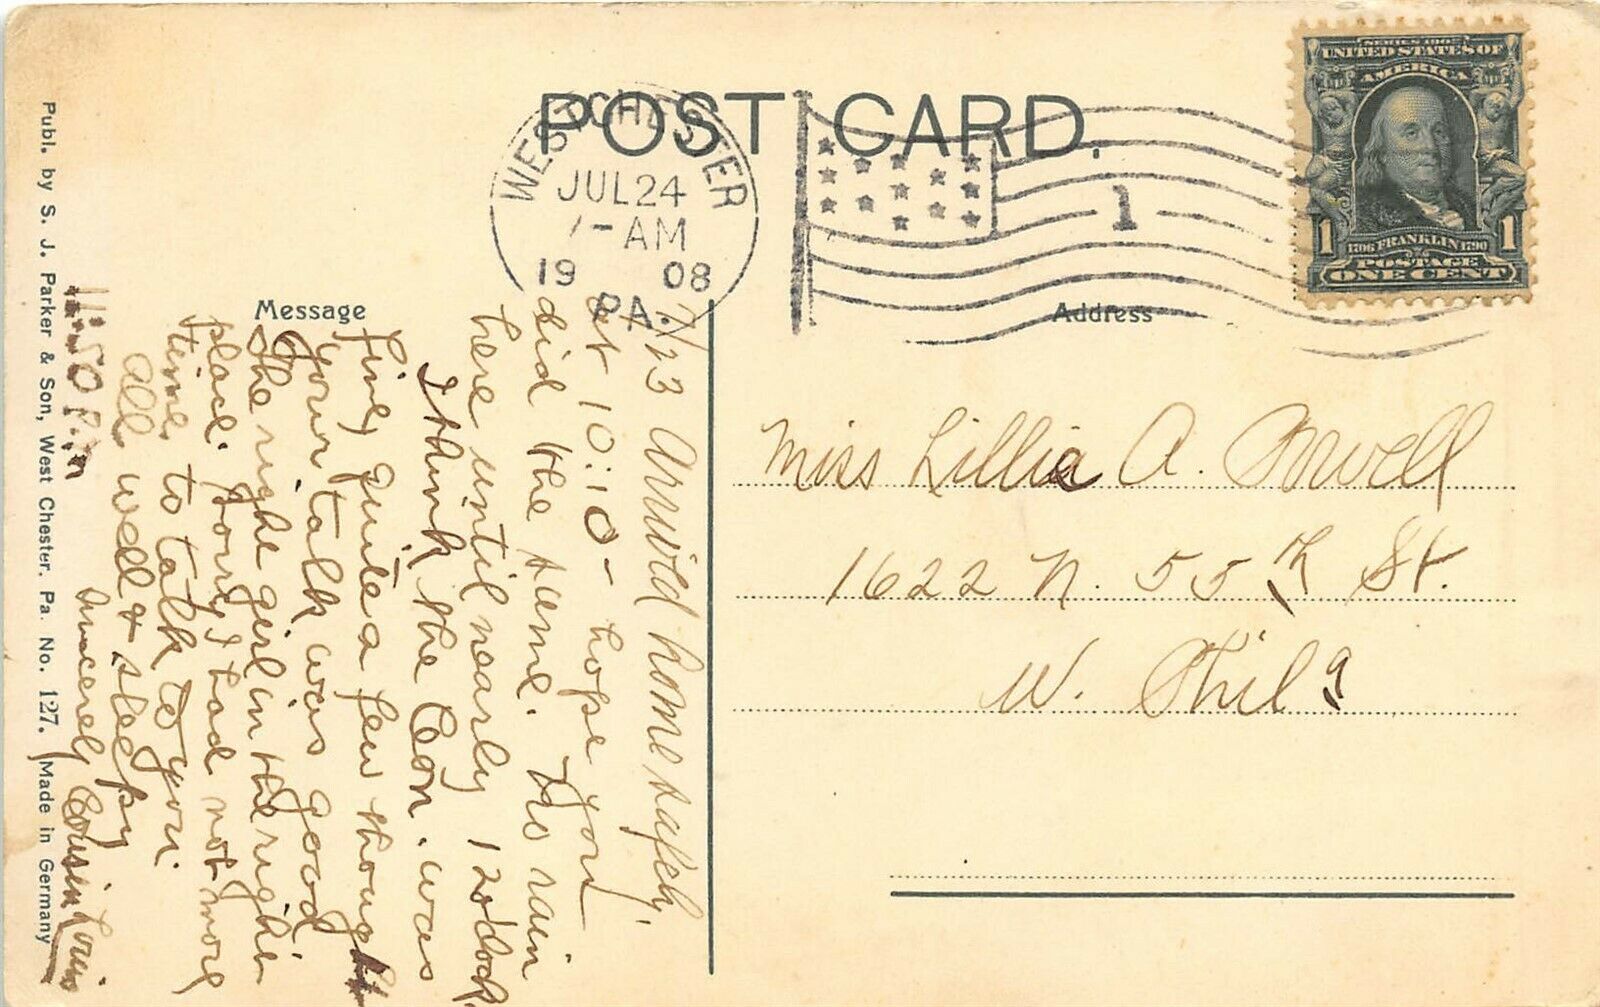 POST CARD.
WESTCHESTER
JUL 24
7-AM
19 08
PA.
1
SERIES 1902
UNITED STATES OF
AMERICA
1 1706 FRANKLIN 1790 1
POSTAGE
ONE CENT
Message
Address
7/23 Arrived home safely,
at 10:10 - hope you
did the same. No rain
here until nearly 12o'clock
I think the Con. was
fine, quite a few thought
your talk was good
The right girl in the right
place. Sorry I had not more
time to talk to you.
All well & sleepy
Sincerely Cousin Louis
11:50 P.M
Miss Lillie A. Powell
1622 N. 55th St.
W. Phila
Publ. by S. J. Parker & Son, West Chester. Pa. No. 127. Made in Germany